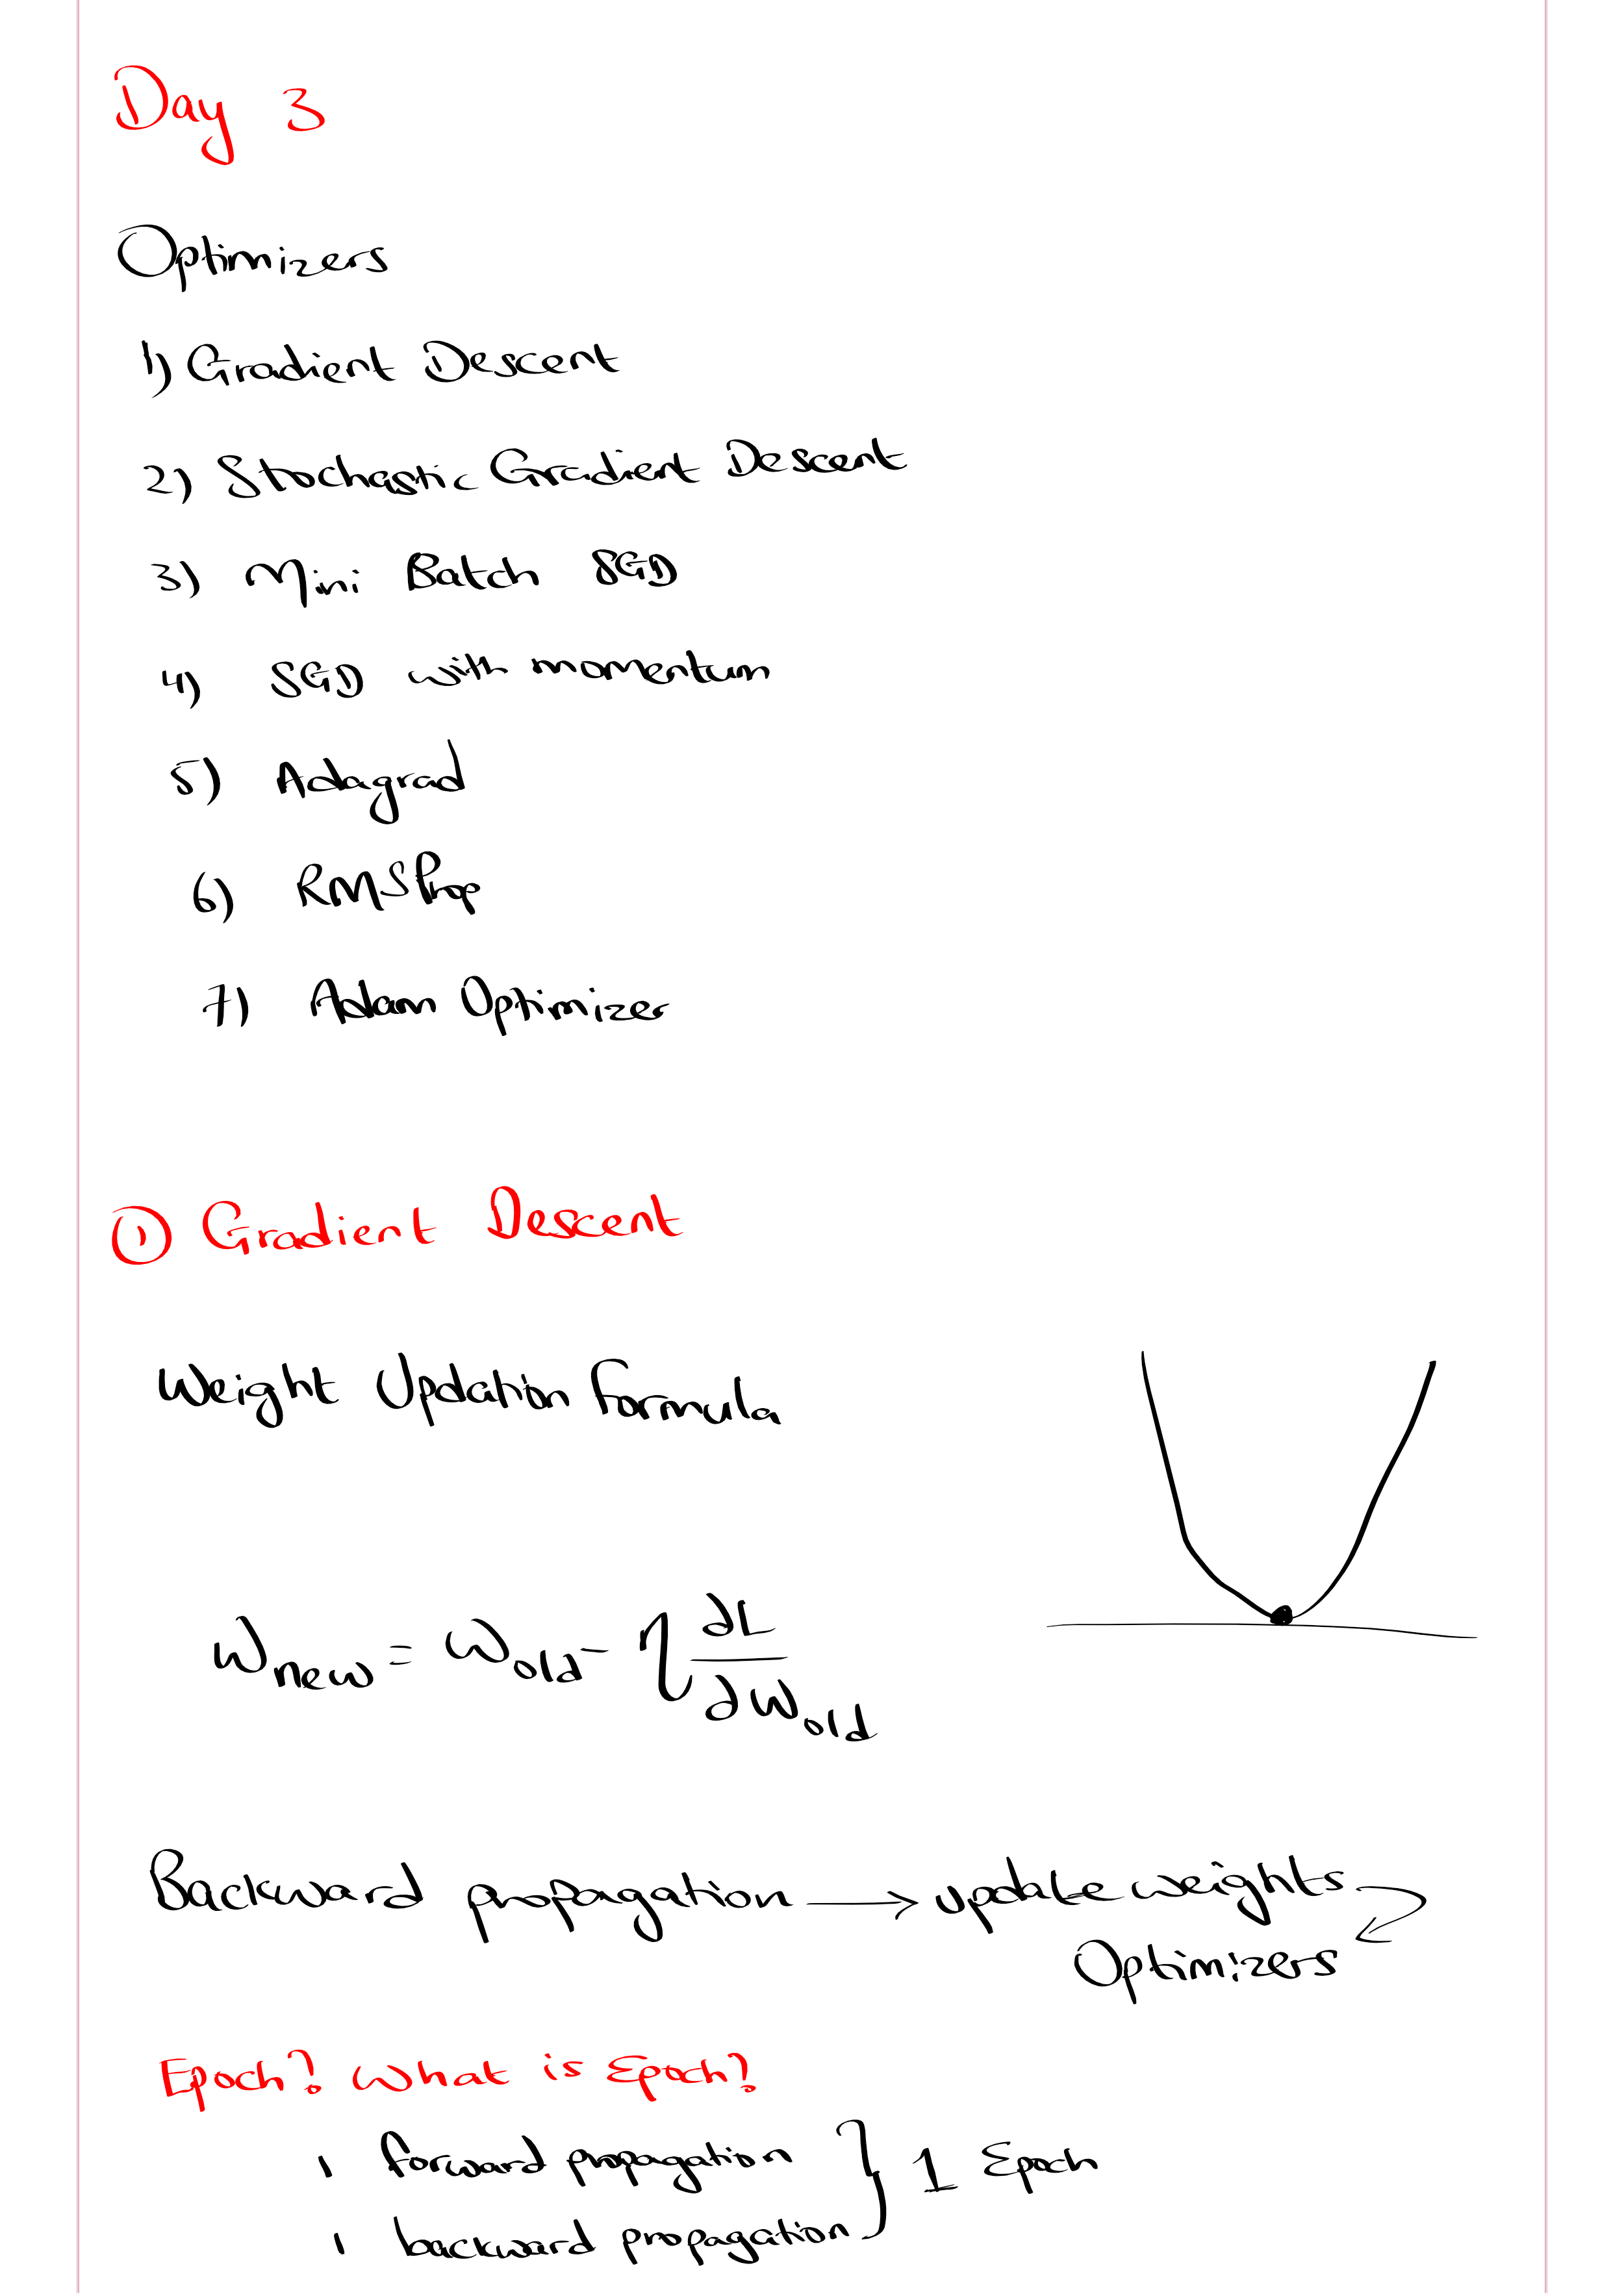 Day 3
Optimizers
1) Gradient Descent
2) Stochastic Gradient Descent
3) Mini Batch SGD
4) SGD with momentum
5) Adagrad
6) RMSProp
7) Adam Optimizer
① Gradient Descent
Weight Updation Formula
W_new = W_old - η ∂L/∂W_old
Backward propagation → update weights
Optimizers
Epoch? What is Epoch?
1 forward propagation } 1 Epoch
1 backward propagation